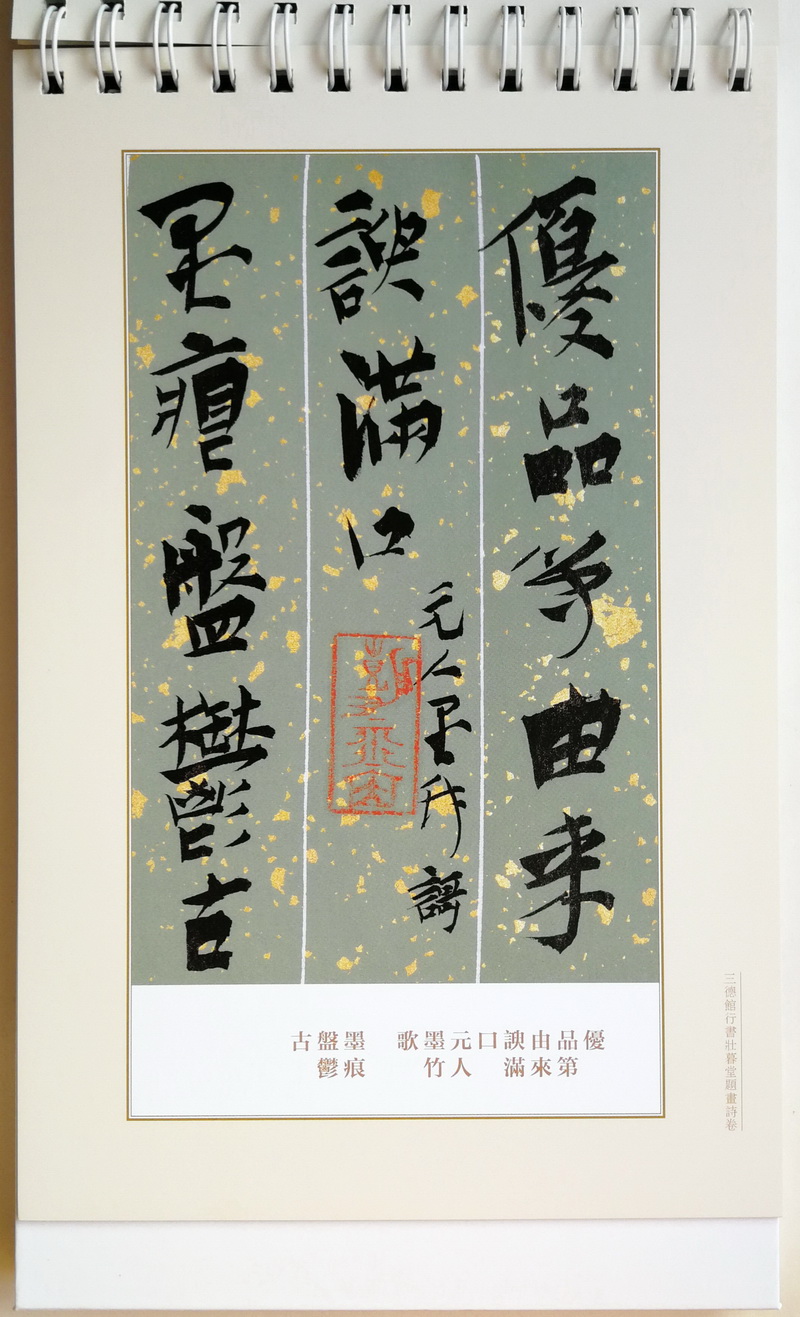 優品第由來
諛滿口
元人墨竹謌
墨痕盤鬱古
優
品第
由來
諛滿
口
元人
墨竹
歌
墨痕
盤鬱
古
三德館行書壯暮堂題畫詩卷